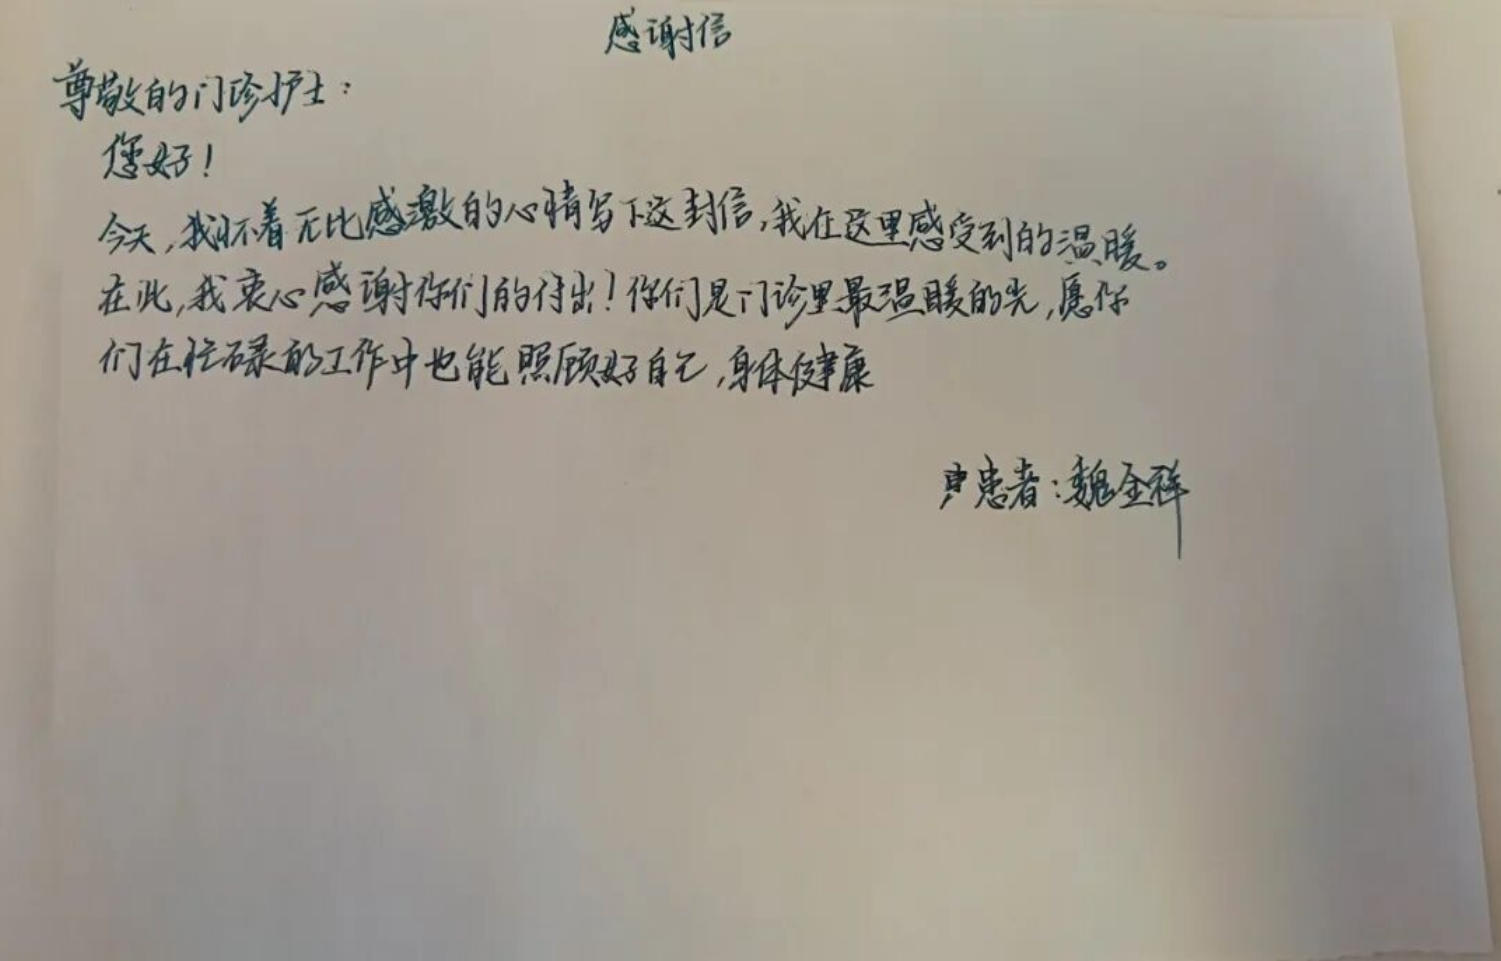 感谢信
尊敬的门诊护士：
您好！
今天，我怀着无比感激的心情写下这封信，我在这里感受到的温暖。
在此，我衷心感谢你们的付出！你们是门诊里最温暖的光，愿你
们在忙碌的工作中也能照顾好自己，身体健康
患者：魏全祥